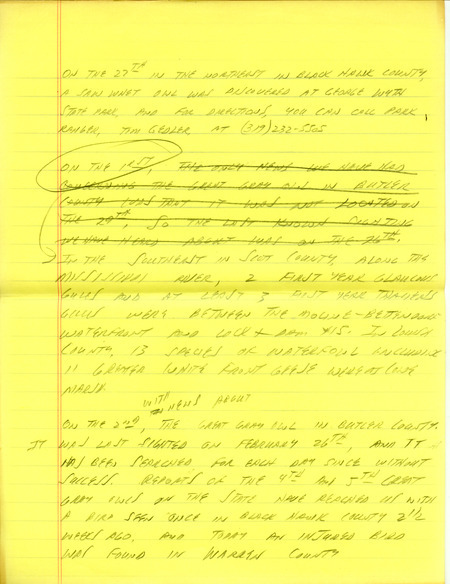 ON THE 27TH IN THE NORTHEAST IN BLACK HAWK COUNTY,
A SAW WHET OWL WAS DISCOVERED AT GEORGE WYTH
STATE PARK, AND FOR DIRECTIONS, YOU CAN CALL PARK
RANGER, TIM GEDLER AT (319)232-5505
ON THE 1ST, THE ONLY NEWS WE HAVE HAD
CONCERNING THE GREAT GRAY OWL IN BUTLER
COUNTY WAS THAT IT WAS NOT LOCATED ON
THE 28TH, SO THE LAST KNOWN SIGHTING
WE HAVE HEARD ABOUT WAS ON THE 26TH.
IN THE SOUTHEAST IN SCOTT COUNTY, ALONG THE
MISSISSIPPI RIVER, 2 FIRST YEAR GLAUCOUS
GULLS AND AT LEAST 3 FIRST YEAR THAYER'S
GULLS WERE BETWEEN THE MOLINE-BETTENDORF
WATERFRONT AND LOCK + DAM #15. IN LOUISA
COUNTY, 13 SPECIES OF WATERFOWL INCLUDING
11 GREATER WHITE FRONT GEESE WERE AT CONE
MARSH
WITH NEWS ABOUT
ON THE 2ND, THE GREAT GRAY OWL IN BUTLER COUNTY.
IT WAS LAST SIGHTED ON FEBRUARY 26TH, AND IT
HAS BEEN SEARCHED FOR EACH DAY SINCE WITHOUT
SUCCESS. REPORTS OF THE 4TH AND 5TH GREAT
GRAY OWLS ON THE STATE HAVE REACHED US WITH
A BIRD SEEN ONCE IN BLACK HAWK COUNTY 2 1/2
WEEKS AGO, AND TODAY AN INJURED BIRD
WAS FOUND IN WARREN COUNTY